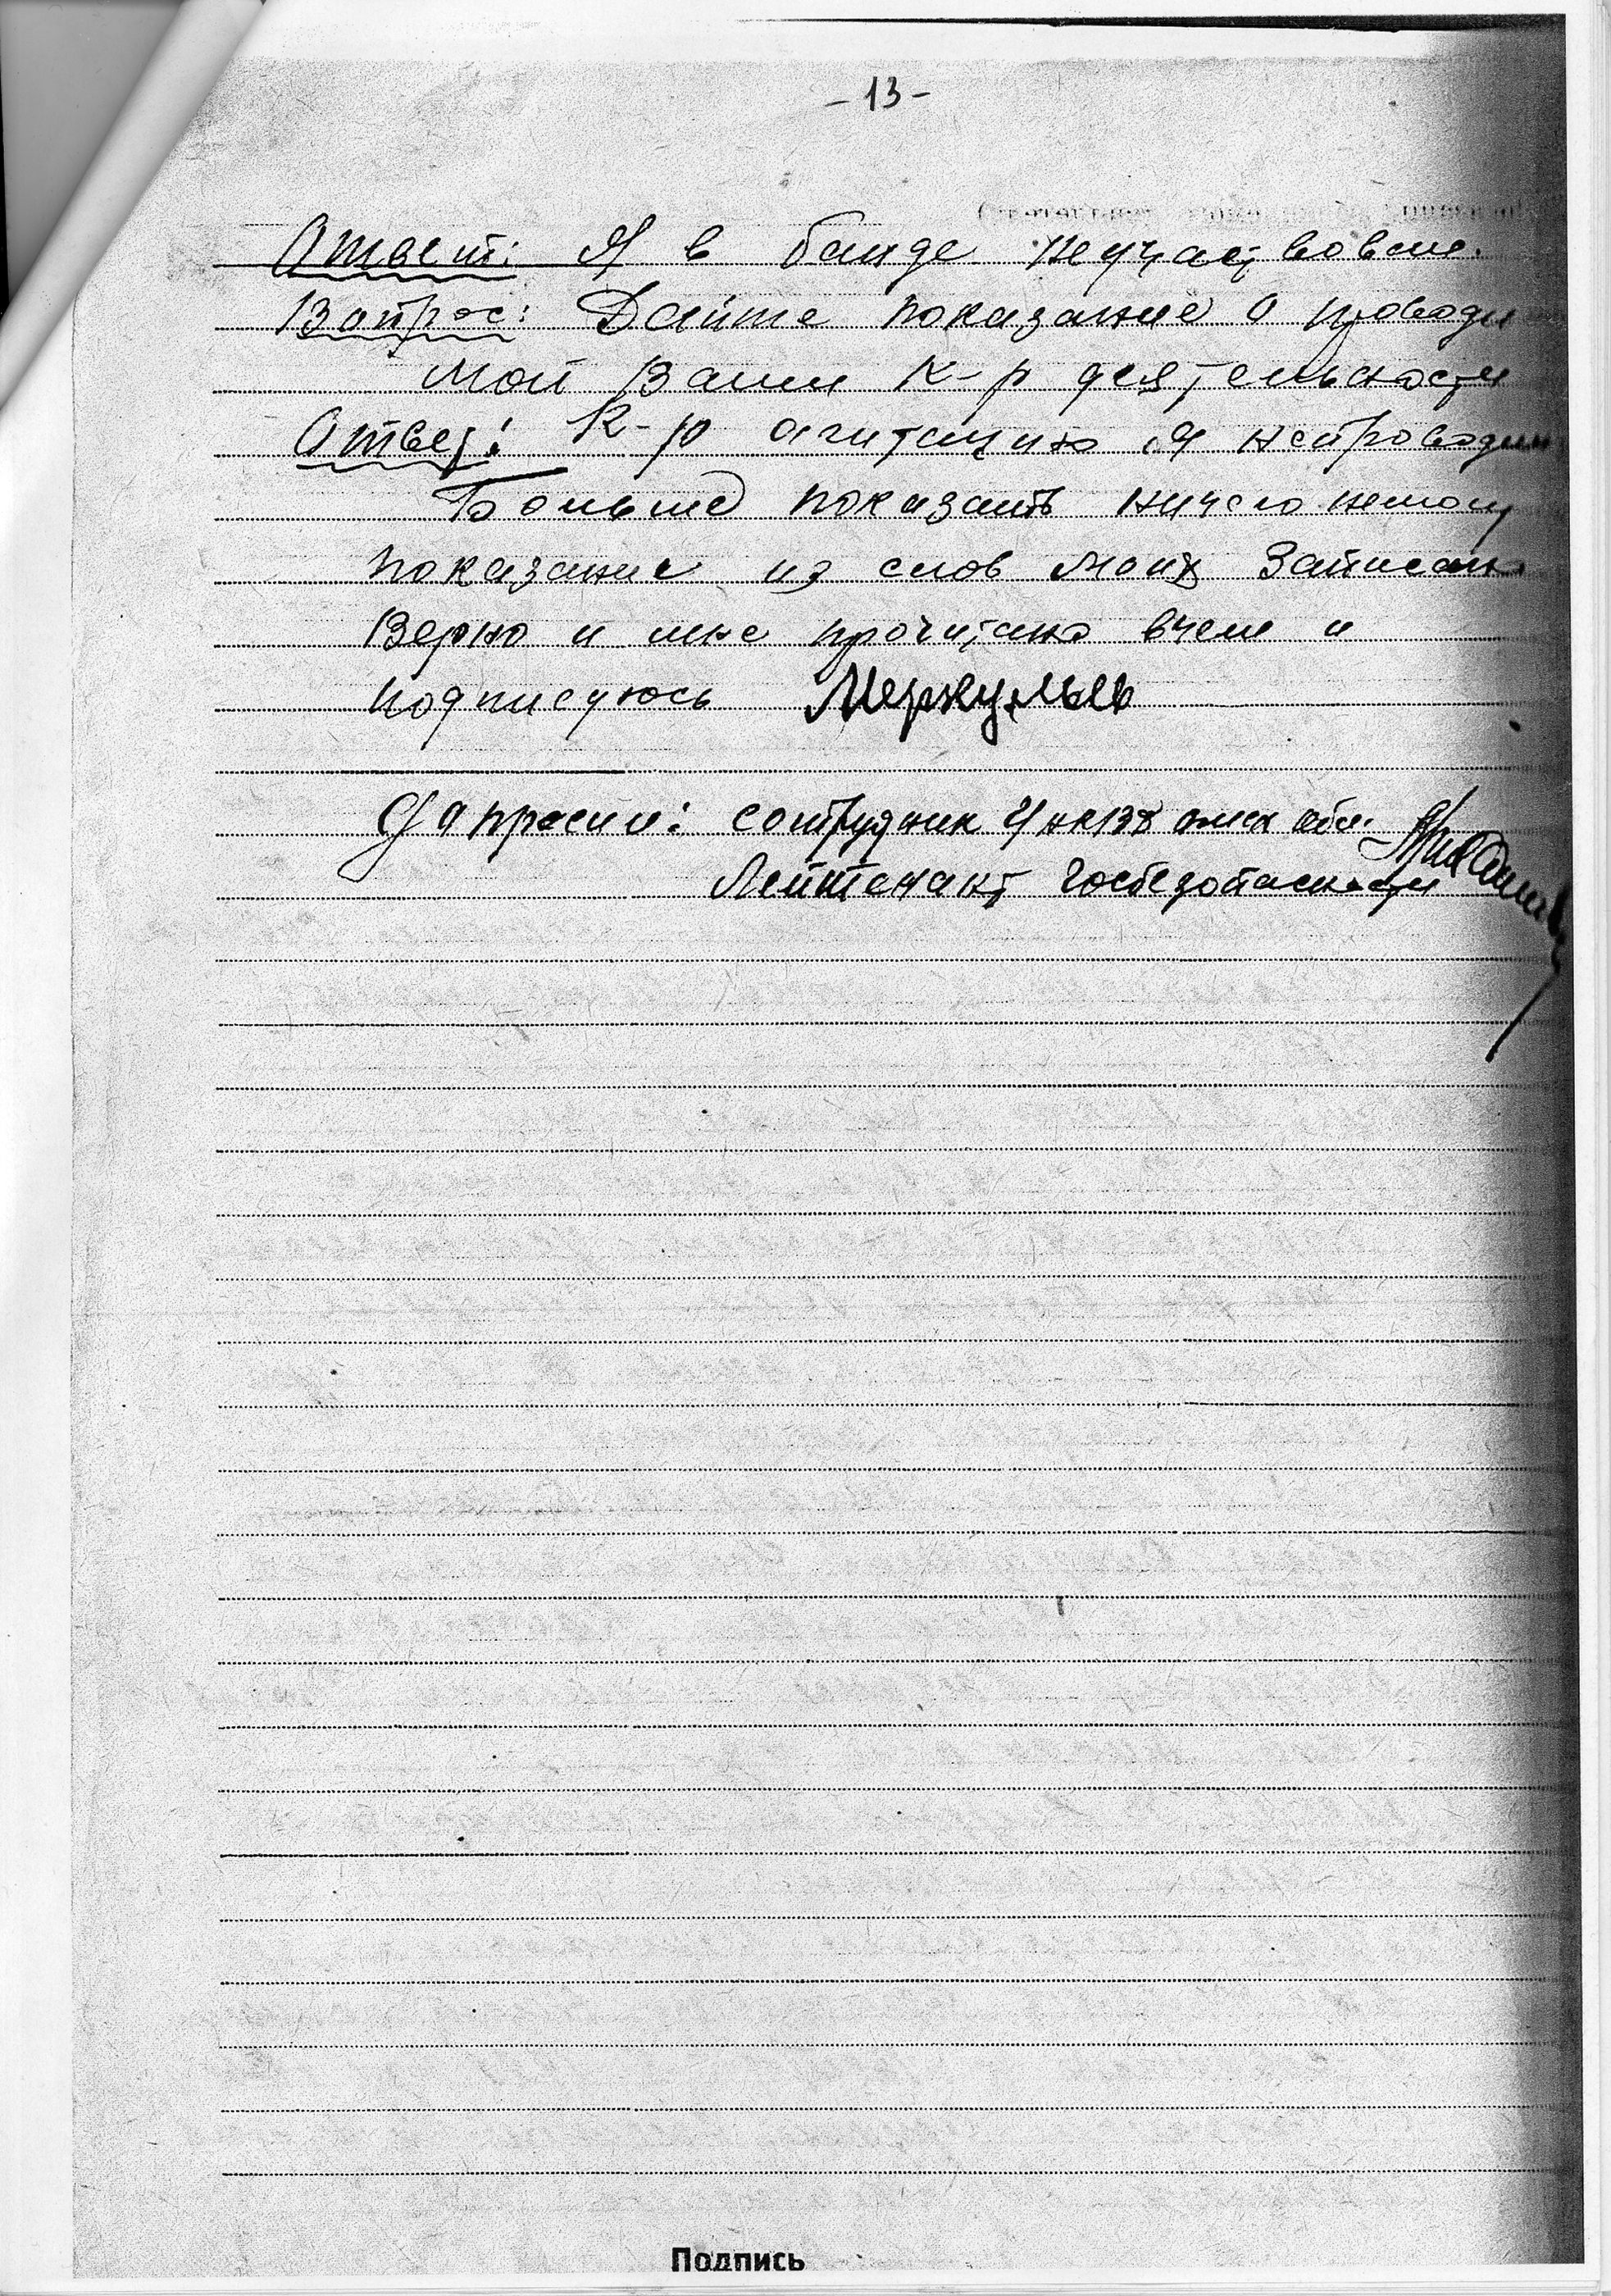 - 13 -
Ответ: Я в банде неучаствовал.
Вопрос: Дайте показание о проводи
мой Вами К-р деятельности
Ответ: К-р агитацию я непроводил
Больше показать ничего немогу
показание из слов моих записан.
Верно и мне прочитано вчем и
подписуюсь Меркульев
Допросил: сотрудник УНКВД омск обл.
Лейтенант Госбезопасности
Подпись